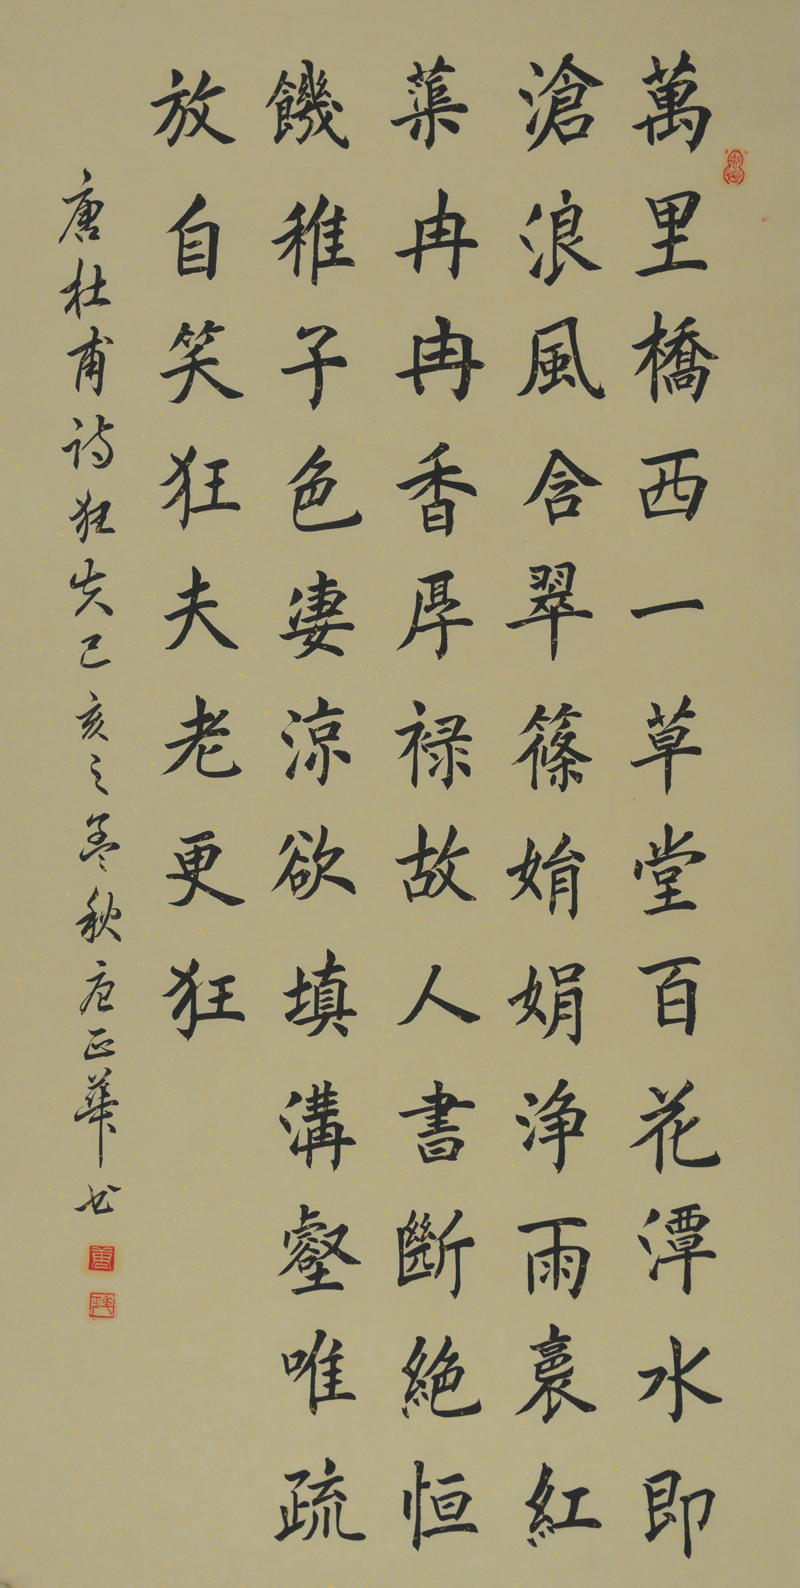 萬里橋西一草堂百花潭水即
滄浪風含翠篠娟娟淨雨裛紅
蕖冉冉香厚禄故人書斷絶恒
饑稚子色凄涼欲填溝壑唯疏
放自笑狂夫老更狂
唐杜甫诗狂夫己亥之孟秋唐正華书